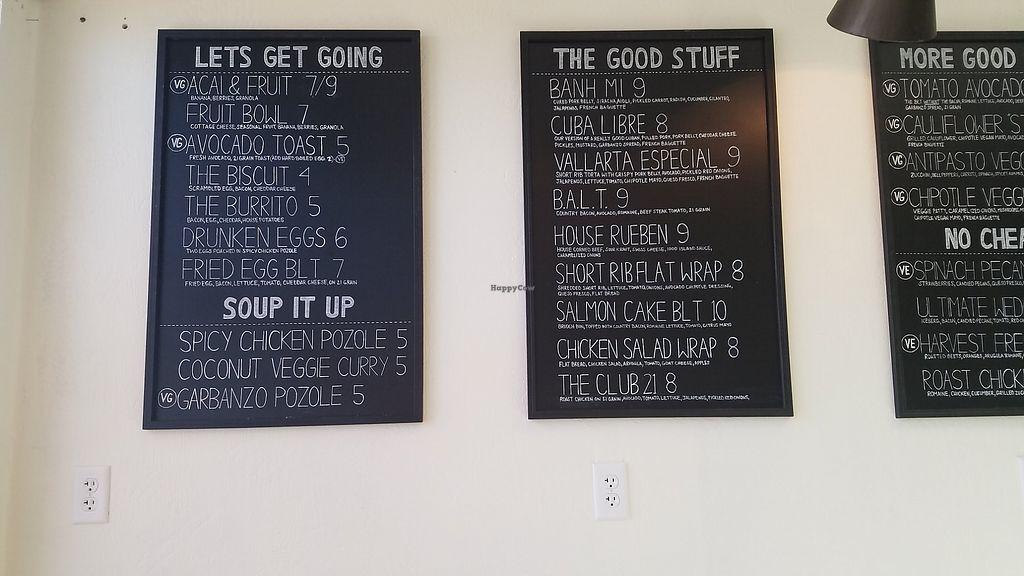 LETS GET GOING
VG ACAI & FRUIT 7/9
BANANA, BERRIES, GRANOLA
FRUIT BOWL 7
COTTAGE CHEESE, SEASONAL FRUIT, BANANA, BERRIES, GRANOLA
VG AVOCADO TOAST 5
FRESH AVOCADO, 21 GRAIN TOAST (ADD HARD BOILED EGG 2)
THE BISCUIT 4
SCRAMBLED EGG, BACON, CHEDDAR CHEESE
THE BURRITO 5
BACON, EGG, CHEDDAR, HOUSE POTATOES
DRUNKEN EGGS 6
TWO EGGS POACHED IN SPICY CHICKEN POZOLE
FRIED EGG BLT 7
FRIED EGG, BACON, LETTUCE, TOMATO, CHEDDAR CHEESE, ON 21 GRAIN
SOUP IT UP
SPICY CHICKEN POZOLE 5
COCONUT VEGGIE CURRY 5
VG GARBANZO POZOLE 5
THE GOOD STUFF
BANH MI 9
CURED PORK BELLY, SIRACHA AIOLI, PICKLED CARROT, RADISH, CUCUMBER, CILANTRO,
JALAPENOS, FRENCH BAGUETTE
CUBA LIBRE 8
OUR VERSION OF A REALLY GOOD CUBAN, PULLED PORK, PORK BELLY, CHEDDAR CHEESE,
PICKLES, MUSTARD, GARBANZO SPREAD, FRENCH BAGUETTE
VALLARTA ESPECIAL 9
SHORT RIB TORTA WITH CRISPY PORK BELLY, AVOCADO, PICKLED RED ONIONS,
JALAPENOS, LETTUCE, TOMATO, CHIPOTLE MAYO, QUESO FRESCO, FRENCH BAGUETTE
B.A.L.T. 9
COUNTRY BACON, AVOCADO, ROMAINE, BEEF STEAK TOMATO, 21 GRAIN
HOUSE RUEBEN 9
HOUSE CORNED BEEF, SAUERKRAUT, SWISS CHEESE, 1000 ISLAND SAUCE,
CARAMELIZED ONIONS
SHORT RIB FLAT WRAP 8
SHREDDED SHORT RIB, LETTUCE, TOMATO, ONIONS, AVOCADO CHIPOTLE DRESSING,
QUESO FRESCO, FLAT BREAD
SALMON CAKE BLT 10
BRIOCH BUN, TOPPED WITH COUNTRY BACON, ROMAINE LETTUCE, TOMATO, CITRUS MAYO
CHICKEN SALAD WRAP 8
FLAT BREAD, CHICKEN SALAD, ARUGULA, TOMATO, GOAT CHEESE, APPLES
THE CLUB 21 8
ROAST CHICKEN ON 21 GRAIN, AVOCADO, TOMATO, LETTUCE, JALAPENOS, PICKLED RED ONIONS,
MORE GOOD
VG TOMATO AVOCADO
THE BLT WITHOUT THE BACON, ROMAINE LETTUCE, AVOCADO,
GARBANZO SPREAD, 21 GRAIN
VG CAULIFLOWER
GRILLED CAULIFLOWER, CHIPOTLE VEGAN MAYO,
FRENCH BAGUETTE
VG ANTIPASTO VEGG
ZUCCHINI, BELL PEPPERS, CARROTS, SPINACH,
VG CHIPOTLE VEGG
VEGGIE PATTY, CARAMELIZED ONIONS,
CHIPOTLE VEGAN MAYO, FRENCH BAGUETTE
NO CHEA
VE SPINACH PECAN
STRAWBERRIES, CANDIED PECANS, QUESO FRESCO
ULTIMATE WED
ICEBERG, BACON, CANDIED PECANS, TOMATO,
VE HARVEST FRE
ROASTED BEETS, ORANGES, ARUGULA
ROAST CHICK
ROMAINE, CHICKEN, CUCUMBER, GRILLED
HappyCow